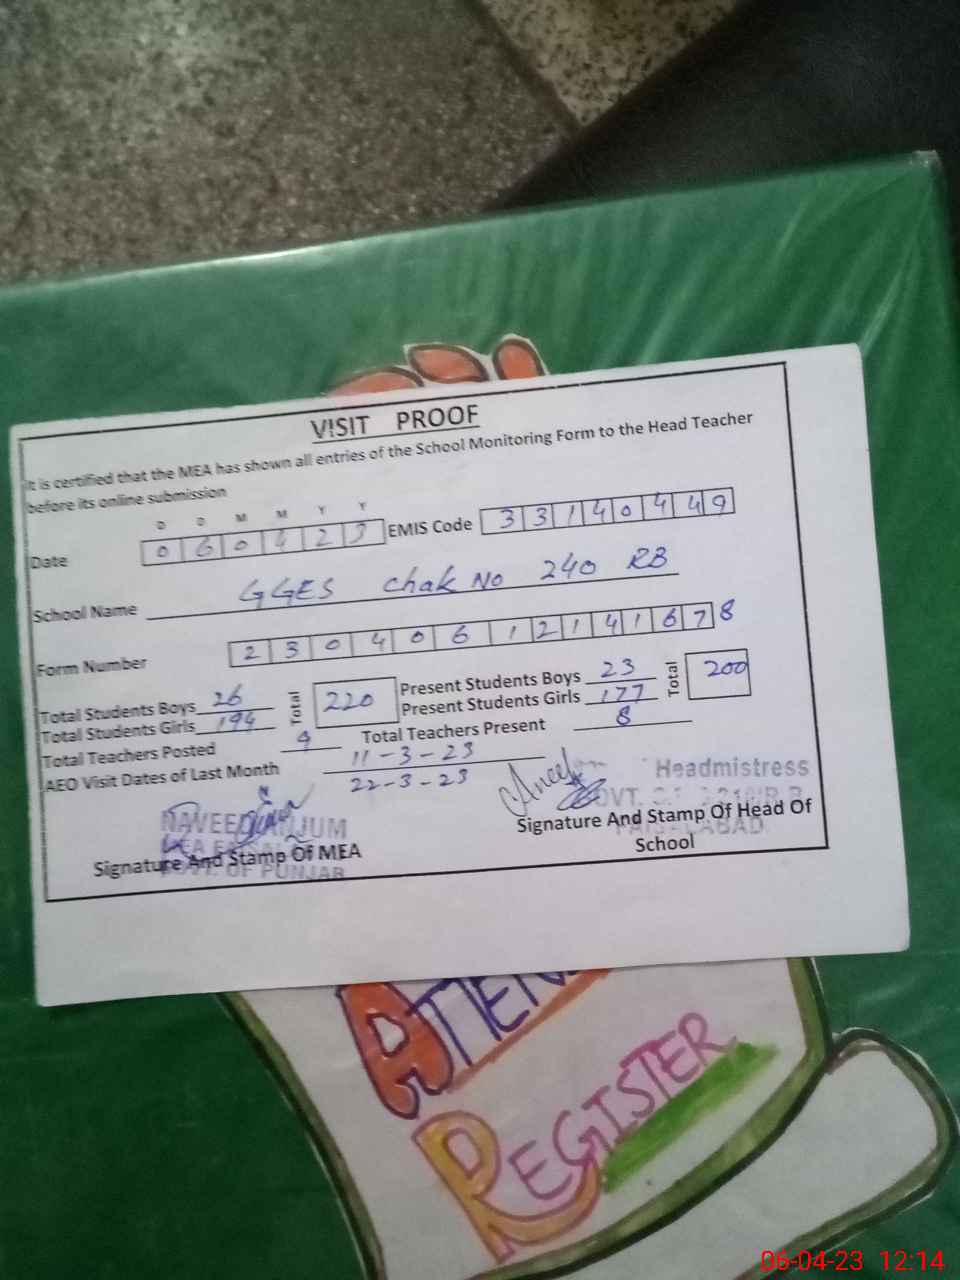 VISIT PROOF
It is certified that the MEA has shown all entries of the School Monitoring Form to the Head Teacher
before its online submission
D D M M Y Y
Date 0 6 0 4 2 3 EMIS Code 3 3 1 4 0 4 4 9
School Name GGES Chak No 240 RB
Form Number 2 3 0 4 0 6 1 2 1 4 1 6 7 8
Total Students Boys 26 Total 220 Present Students Boys 23 Total 200
Total Students Girls 194 Present Students Girls 177
Total Teachers Posted 9 Total Teachers Present 8
AEO Visit Dates of Last Month 11-3-23
22-3-23
Headmistress
NAVEED ANJUM
GOVT.
Signature And Stamp Of MEA
Signature And Stamp Of Head Of
School
FAISALABAD
GOVT. OF PUNJAB
REGISTER
06-04-23 12:14